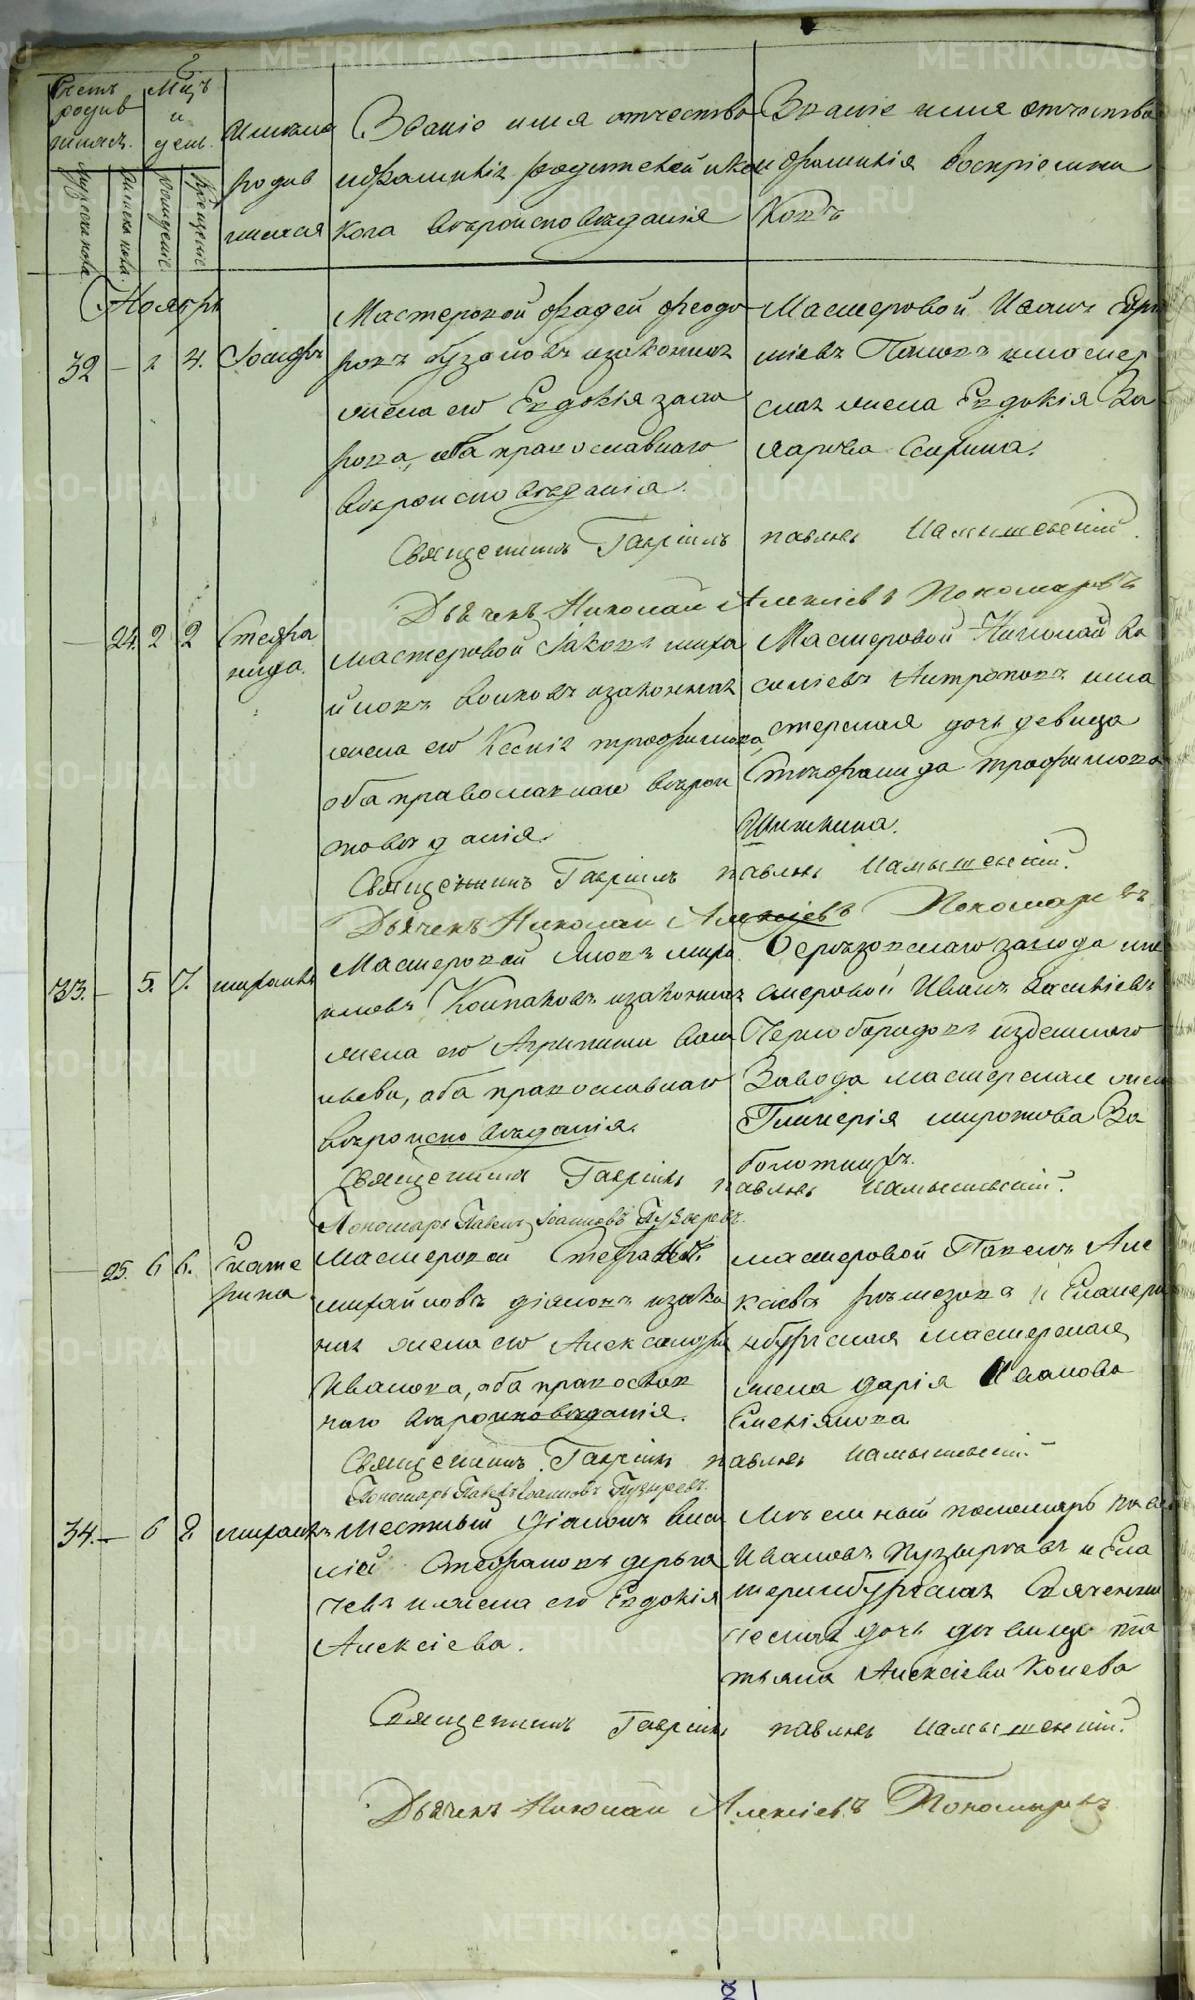 METRIKI.GASO-URAL.RU
Счетъ родив шихся.
Мцъ и день.
Имена родив шихся
Званіе имя отчество
и фамилія родителей и ка
кого вѣроисповѣданія
Званіе имя отчество
и фамилія воспріемни
ковъ
мужеска пола
женска пола
рожденіе
крещеніе
Ноябрь
32 — 2 4. Іосифъ
Мастеровой Фадей Феодо
ровъ бузановъ изаконная
жена его Евдокія заха
рова, оба православнаго
вѣроисповѣданія.
Мастеровой Иванъ
Поповъ имастер
ская жена Евдокія
Священникъ Гавріилъ павловъ
Дьячекъ Николай Алексіевъ Пономаревъ
— 24. 2 2 Стефа
нида.
мастеровой Іаковъ миха
йловъ волковъ изаконная
жена его Ксенія трофимова
оба православнаго вѣрои
сповѣданія.
Мастеровой Николай Ва
силіевъ Антроповъ има
стерская дочь девица
Стефанида трофимова
Шишкина.
Священникъ Гавріилъ павловъ
Дьячекъ Николай Алексіевъ Пономаревъ
33. — 5. 7. михаилъ
Мастеровой Яковъ миха
иловъ Колпаковъ изаконная
жена его Агрипина Васи
льева, оба православнаго
вѣроисповѣданія.
Березовскаго завода ма
стеровой Иванъ Василіевъ
Чернобородовъ издешняго
Завода мастерская жена
Гликерія миронова За
болотныхъ.
Священникъ Гавріилъ павловъ
Пономарь Павелъ Іоанновъ Пузыревъ.
— 25. 6 6. Екате
рина
Мастеровой Стефанъ
михайловъ діяковъ изако
ная жена его Александра
Иванова, оба православ
наго вѣроисповѣданія.
мастеровой Павелъ Але
ксіевъ и Екатери
нбургская мастерская
жена дарія Иванова
Емеліянова
Священникъ Гавріилъ павловъ
Пономарь Павелъ Іоанновъ Пузыревъ.
34. — 6 8 михаилъ
Местный Діаконъ Васи
лій Стефановъ
и жена его Евдокія
Алексіева.
Местный пономарь Павелъ
Ивановъ Пузыревъ и Ека
теринбургская Священни
ческая дочь девица та
тьяна Алексіева Конева
Священникъ Гавріилъ павловъ
Дьячекъ Николай Алексіевъ Пономаревъ